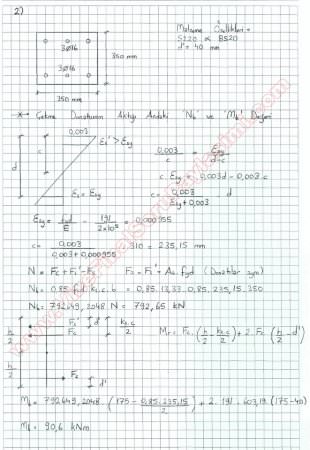 2)
Malzeme Özellikleri =
S220 ∝ BS20
d' = 40 mm
3Ø16
350 mm
3Ø16
350 mm
-x→ Çekme Donatısının Aktığı Andaki "Nb" ve "Mb" Değeri
0,003
εs' > εsy
c
d
εs = εsy
0,003 / c = εsy / d-c
c . εsy = 0,003d - 0,003.c
c = 0,003 / εsy + 0,003 d
εsy = fyd / E = 191 / 2x10⁵ = 0,000955
c = 0,003 / 0,003 + 0,000955 . 310 = 235,15 mm
N = Fc + Fs' - Fs Fs = Fs' = As . fyd (Donatılar aynı)
Nb = 0.85 fcd k1.c.b = 0,85. 13,33. 0,85. 235,15. 350
Nb = 792649,2048 N = 792,65 kN
h/2
Fs'
Fc
d'
k1.c / 2
Mr = Fc . (h/2 - k1.c/2) + 2. Fs (h/2 - d')
h/2
Fs
d'
Mb = 792649,2048 (175 - 0,85.235,15 / 2) + 2. 191. 603,19 (175-40)
Mb = 90,6 kNm